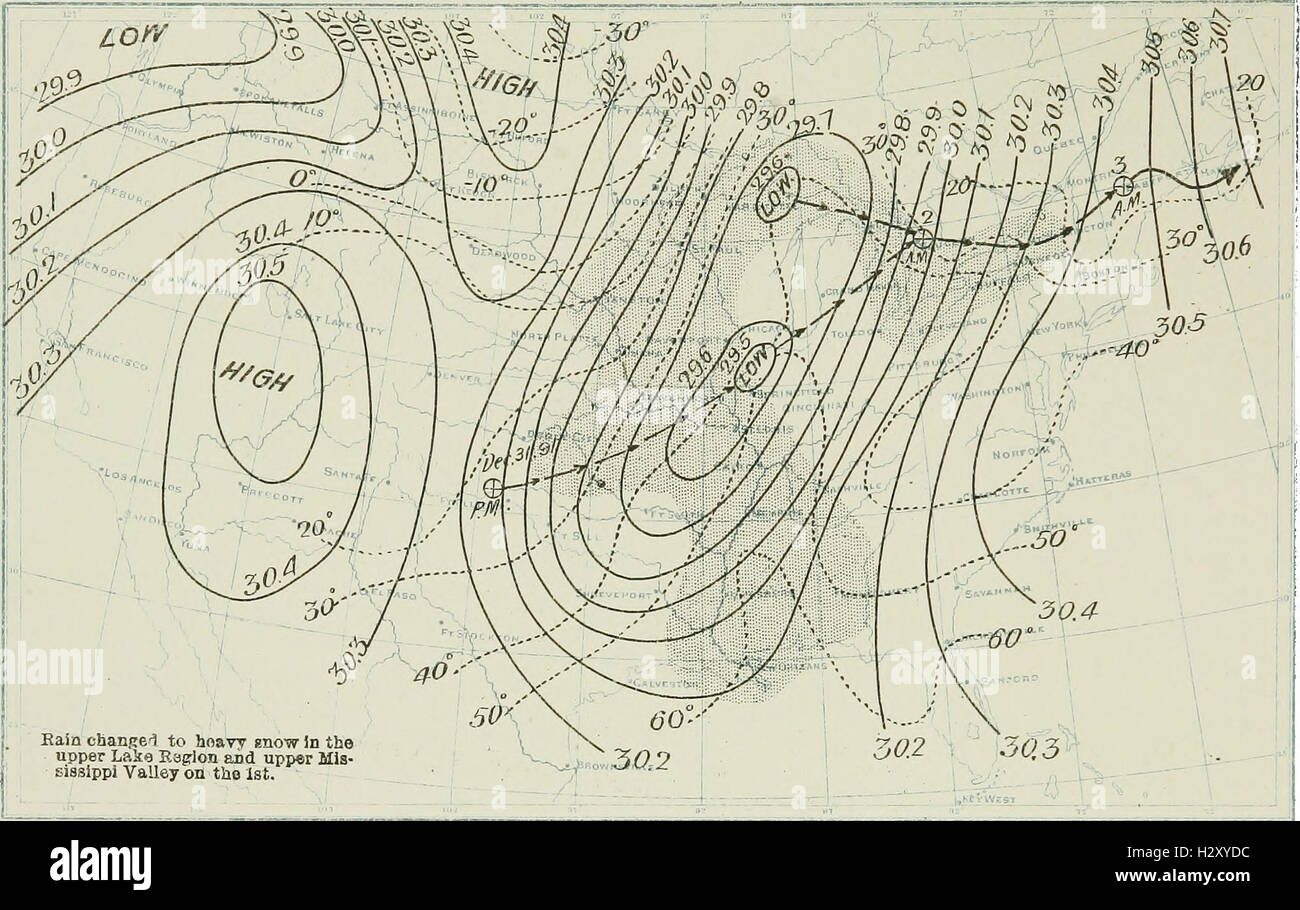 LOW
29.9
30.0
30.1
30.2
30.3
30.4
30.4
-30°
30.3
30.2
30.1
30.0
29.9
29.8
30°
29.7
30°
29.8
29.9
30.0
30.1
30.2
30.3
30.4
30.5
30.6
30.7
20
HIGH
-20°
-10°
0°
10°
29.9
30.0
30.1
30.2
30.3
29.6
LOW
20°
2
A.M.
3
A.M.
30°
30.6
30.5
40°
30.4
30.5
HIGH
30.4
30.3
29.6
29.5
LOW
Dec. 31, 91
P.M.
20°
30°
40°
50°
60°
30.2
30.2
30.3
50°
30.4
60°
OLYMPIA
SPOKANE FALLS
FT ASSINNIBOINE
PORTLAND
LEWISTON
HELENA
ROSEBURG
BISMARCK
MOORHEAD
QUEBEC
CAPE MENDOCINO
WINNEMUCCA
DEADWOOD
SALT LAKE CITY
SAN FRANCISCO
NORTH PLATTE
DENVER
CHICAGO
TOLEDO
CLEVELAND
BOSTON
NEW YORK
PITTSBURG
WASHINGTON
SPRINGFIELD
CINCINNATI
ST LOUIS
NORFOLK
HATTERAS
LOS ANGELOS
PRESCOTT
SANTA FE
SAN DIEGO
YUMA
FT SILL
FT SMITH
NASHVILLE
CHARLOTTE
SMITHVILLE
EL PASO
SHREVEPORT
SAVANNAH
FT STOCKTON
GALVESTON
SANFORD
BROWNSVILLE
KEY WEST
Rain changed to heavy snow in the
upper Lake Region and upper Mis-
sissippi Valley on the 1st.
alamy
alamy
H2XYDC
www.alamy.com